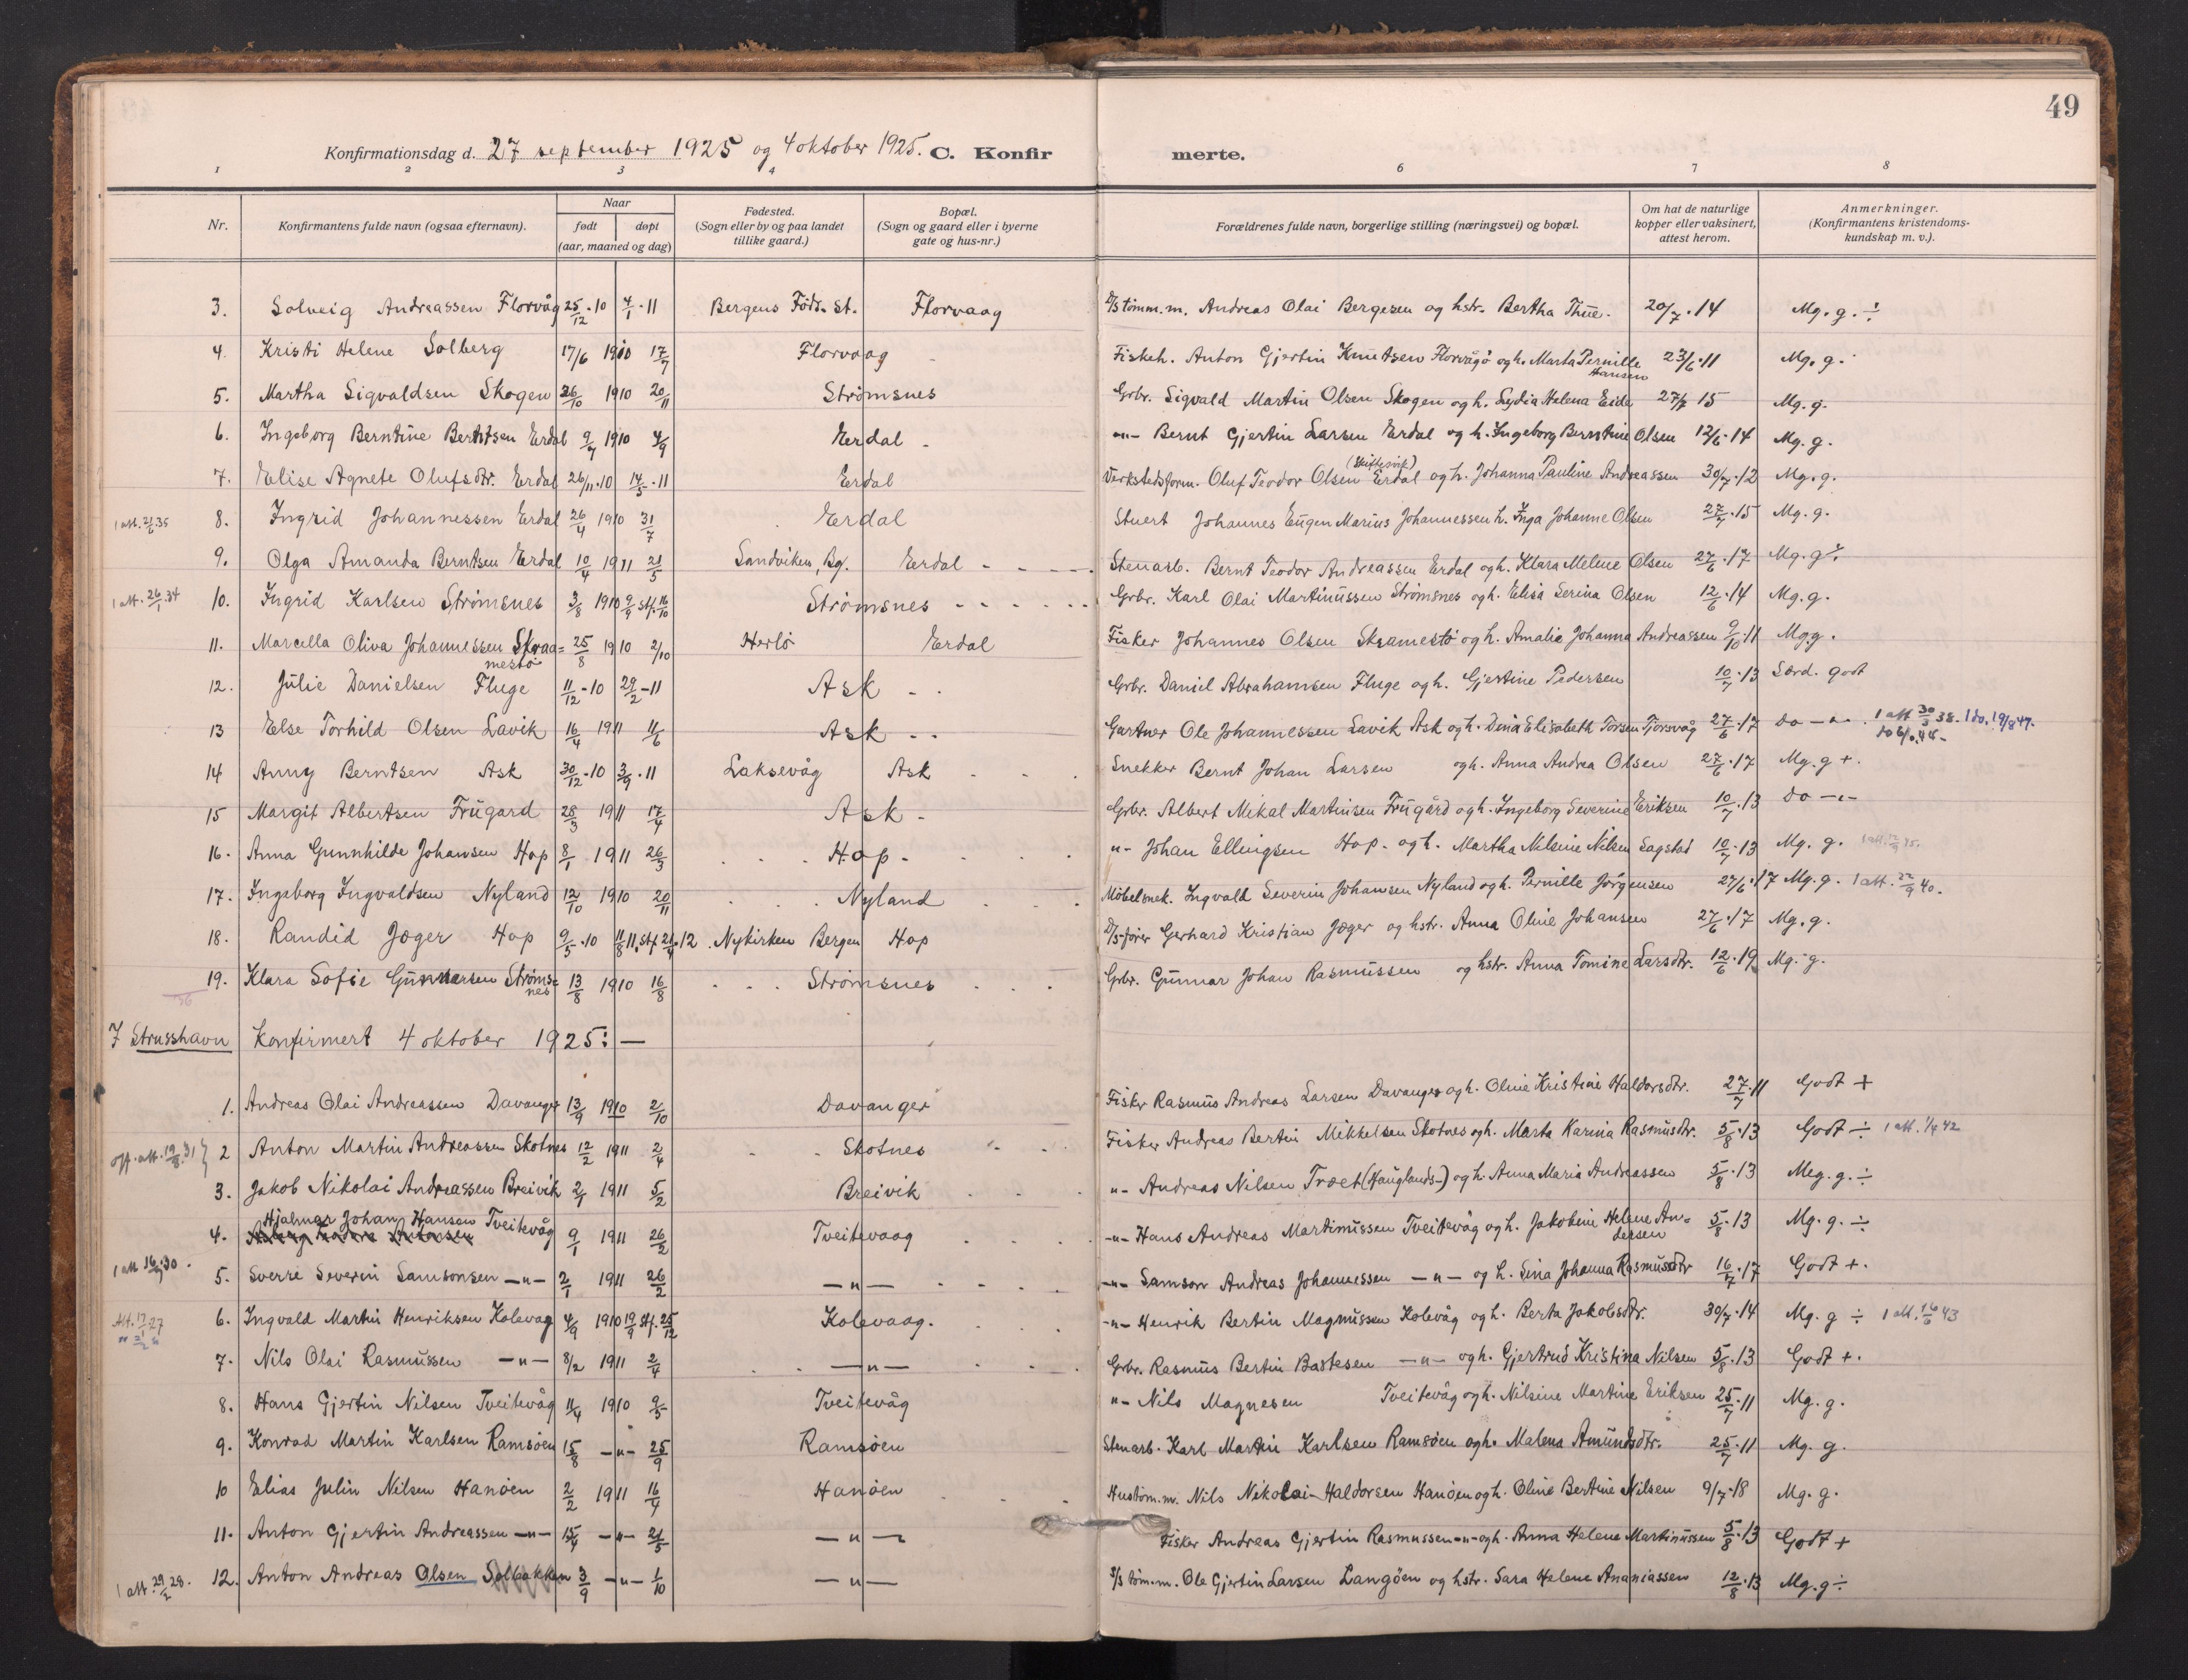 49
Konfirmationsdag d. 27 september 1925 og 4 oktober 1925. C. Konfir merte.
1 2 3 4 6 7 8
Nr. Konfirmantens fulde navn (ogsaa efternavn). Naar født døpt (aar, maaned og dag) Fødested. (Sogn eller by og paa landet tillike gaard.) Bopæl. (Sogn og gaard eller i byerne gate og hus-nr.) Forældrenes fulde navn, borgerlige stilling (næringsvei) og bopæl. Om hat de naturlige kopper eller vaksinert, attest herom. Anmerkninger. (Konfirmantens kristendoms- kundskap m. v.).
3. Solveig Andreassen Florvåg 25/12.10 4/1.11 Bergens Föds. st. Florvaag D/S tömm.m. Andreas Olai Bergesen og hstr. Bertha Thue. 20/7.14 Mg. g. ÷
4. Kristi Helene Solberg 17/6 1910 17/7 Florvaag Fiskeh. Anton Gjertin Knutsen Florvågö og h. Marta Pernille Hansen 23/6.11 Mg. g.
5. Martha Sigvaldsen Skogen 26/10 1910 20/11 Strömsnes Grbr. Sigvald Martin Olsen Skogen og h. Lydia Helena Eide 27/7 15 Mg. g.
6. Ingeborg Berntine Berntsen Erdal 9/7 1910 4/9 Erdal -"- Bernt Gjertin Larsen Erdal og h. Ingeborg Berntine Olsen 12/6.14 Mg. g.
7. Elise Agnete Olufsdtr. Erdal 26/11.10 14/5.11 Erdal Verkstedsform. Oluf Teodor Olsen (Skiftesvik) Erdal og h. Johanna Pauline Andreassen 30/7.12 Mg. g.
1 att. 21/6 35 8. Ingrid Johannessen Erdal 26/4 1910 31/7 Erdal Stuert Johannes Eugen Marius Johannessen h. Inga Johanne Olsen 27/7.15 Mg. g.
9. Olga Amanda Berntsen Erdal 10/4 1911 21/5 Sandviken, Bg. Erdal Stenarb. Bernt Teodor Andreassen Erdal og h. Klara Melene Olsen 27/6.17 Mg. g ÷
1 att. 26/1.34 10. Ingrid Karlsen Strömsnes 3/8 1910 9/9 stf. 16/10 Strömsnes Grbr. Karl Olai Martinussen Strömsnes og h. Elisa Serina Olsen 12/6.14 Mg. g.
11. Marcella Oliva Johannessen Skraa= mestö 25/8 1910 2/10 Herlö Erdal Fisker Johannes Olsen Skramestö og h. Amalie Johanna Andreassen 9/10.11 Mg g.
12. Julie Danielsen Fluge 11/12.10 29/2-11 Ask Grbr. Daniel Abrahamsen Fluge og h. Gjertine Pedersen 10/7.13 Særd. godt
13 Else Torhild Olsen Lavik 16/4 1911 11/6 Ask Gartner Ole Johannessen Lavik Ask og h. Dina Elisabeth Torsen Tjorsvåg 27/6.17 do -"- 1 att 30/3 38. 1 do. 19/8 47.
14 Anny Berntsen Ask 30/12.10 3/9.11 Laksevåg Ask Snekker Bernt Johan Larsen og h. Anna Andrea Olsen 27/6.17 Mg. g +.
15 Margit Albertsen Frugard 28/3 1911 17/4 Ask Grbr. Albert Mikal Martinsen Frugård og h. Ingeborg Severine Eriksen 10/7.13 do -"-
16. Anna Gunnhilde Johansen Hop 8/1 1911 26/3 Hop "- Johan Ellingsen Hop og h. Martha Nilsine Nilsen Sagstad 10/7.13 Mg. g.
17. Ingeborg Ingvaldsen Nyland 12/10 1910 20/11 Nyland Möbelsnek. Ingvald Severin Johansen Nyland og h. Pernille Jörgensen 27/6.17 Mg. g. 1 att. 22/9 40.
18. Randid Jæger Hop 9/5.10 11/8 11, stf. 21/4.12 Nykirken Bergen Hop D/S-förer Gerhard Kristian Jæger og hstr. Anna Oline Johansen 27/6.17 Mg. g.
19. Klara Sofie Gunnarsen Ströms= nes 13/8 1910 16/8 Strömsnes Grbr. Gunnar Johan Rasmussen og hstr. Anna Tomine Larsdtr. 12/6.19 Mg. g.
I Strusshavn Konfirmert 4 oktober 1925: —
1. Andreas Olai Andreassen Davanger 13/9 1910 2/10 Davanger Fisker Rasmus Andreas Larsen Davanger og h. Oline Kristine Haldorsdtr. 27/7.11 Godt +
off. att. 19/8.31 } 2 Anton Martin Andreassen Skotnes 12/2 1911 2/4 Skotnes Fisker Andreas Bertin Mikkelsen Skotnes og h. Marta Karina Rasmusdtr. 5/8.13 Godt ÷ 1 att. 1/4 42
3. Jakob Nikolai Andreassen Breivik 2/1 1911 5/2 Breivik "- Andreas Nilsen Træet (Hauglands-) og h. Anna Maria Andreassen 5/8.13 Meg. g. ÷
4. Hjalmar Johan Hansen Tveitevåg 9/1 1911 26/2 Tveitevaag -"- Hans Andreas Martinussen Tveitevåg og h. Jakobine Helene An= dersen 5/8.13 Mg. g. ÷
1 att 16/9 30. 5. Sverre Severin Samsonsen -"- 2/1 1911 26/2 -"- -"- Samson Andreas Johannessen -"- og h. Sina Johanna Rasmusdtr 16/7.17 Godt +.
Att. 17/1 27 6. Ingvald Martin Henriksen Kolevag 4/9 1910 19/9 stf. 25/12 Kolevaag. -"- Henrik Bertin Magnussen Kolevåg og h. Berta Jakobsdtr. 30/7.14 Mg. g ÷ 1 att. 16/6 43
7. Nils Olai Rasmussen -"- 8/2 1911 2/4 -"- Grbr. Rasmus Bertin Bastesen -"- og h. Gjertrud Kristina Nilsen 5/8.13 Godt +.
8. Hans Gjertin Nilsen Tveitevåg 11/4 1910 9/5 Tveitevåg "- Nils Magnesen Tveitevåg og h. Nilsine Martine Eriksen 25/7.11 Mg. g.
9. Konrad Martin Karlsen Ramsöen 15/8 -"- 25/9 Ramsöen Stenarb. Karl Martin Karlsen Ramsöen og h. Malena Amundsdtr. 25/7.11 Mg. g.
10 Elias Julin Nilsen Hanöen 2/2 1911 16/4 Hanöen Hustöm.m. Nils Nikolai Haldorsen Hanöen og h. Oline Bertine Nilsen 9/7.18 Mg. g.
11. Anton Gjertin Andreassen -"- 15/4 -"- 21/5 -"- Fisker Andreas Gjertin Rasmussen -"- og h. Anna Helene Martinussen 5/8.13 Godt +
1 att. 29/2 28. 12. Anton Andreas Olsen Solbakken 3/9 -"- 1/10 -"- S/S töm.m. Ole Gjertin Larsen Langöen og hstr. Sara Helene Ananiassen 12/8.13 Mg. g ÷